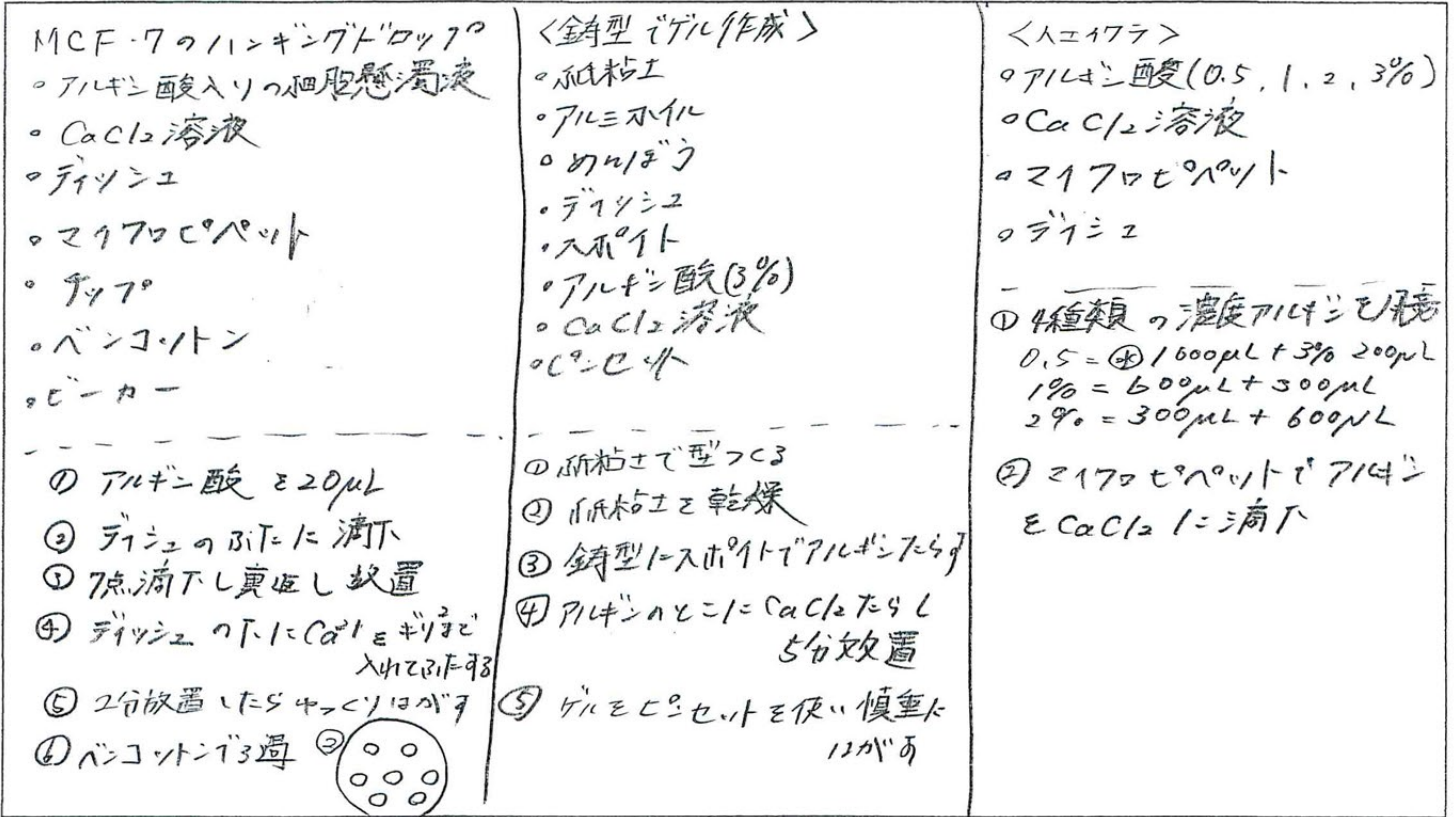 MCF-7のハンギングドロップ
・アルギン酸入りの細胞懸濁液
・CaCl2溶液
・ディッシュ
・マイクロピペット
・チップ
・ベンコットン
・ビーカー
① アルギン酸を20μL
② ディシュのふたに滴下
③ 7点滴下し裏返し放置
④ ディッシュの下にCa²⁺をギリまで
入れてふたする
⑤ 2分放置したらゆっくりはがす
⑥ ベンコットンでろ過
②
<鋳型でゲル作成>
・紙粘土
・アルミホイル
・めんぼう
・ディッシュ
・スポイト
・アルギン酸(3%)
・CaCl2溶液
・ピンセット
① 紙粘土で型つくる
② 紙粘土を乾燥
③ 鋳型にスポイトでアルギンたらす
④ アルギンのとこにCaCl2たらし
5分放置
⑤ ゲルをピンセットを使い慎重に
はがす
<人工イクラ>
・アルギン酸(0.5, 1, 2, 3%)
・CaCl2溶液
・マイクロピペット
・ディシュ
① 4種類の濃度アルギンを用意
0.5=㊌1000μL+3% 200μL
1%=600μL+300μL
2%=300μL+600μL
② マイクロピペットでアルギン
をCaCl2に滴下